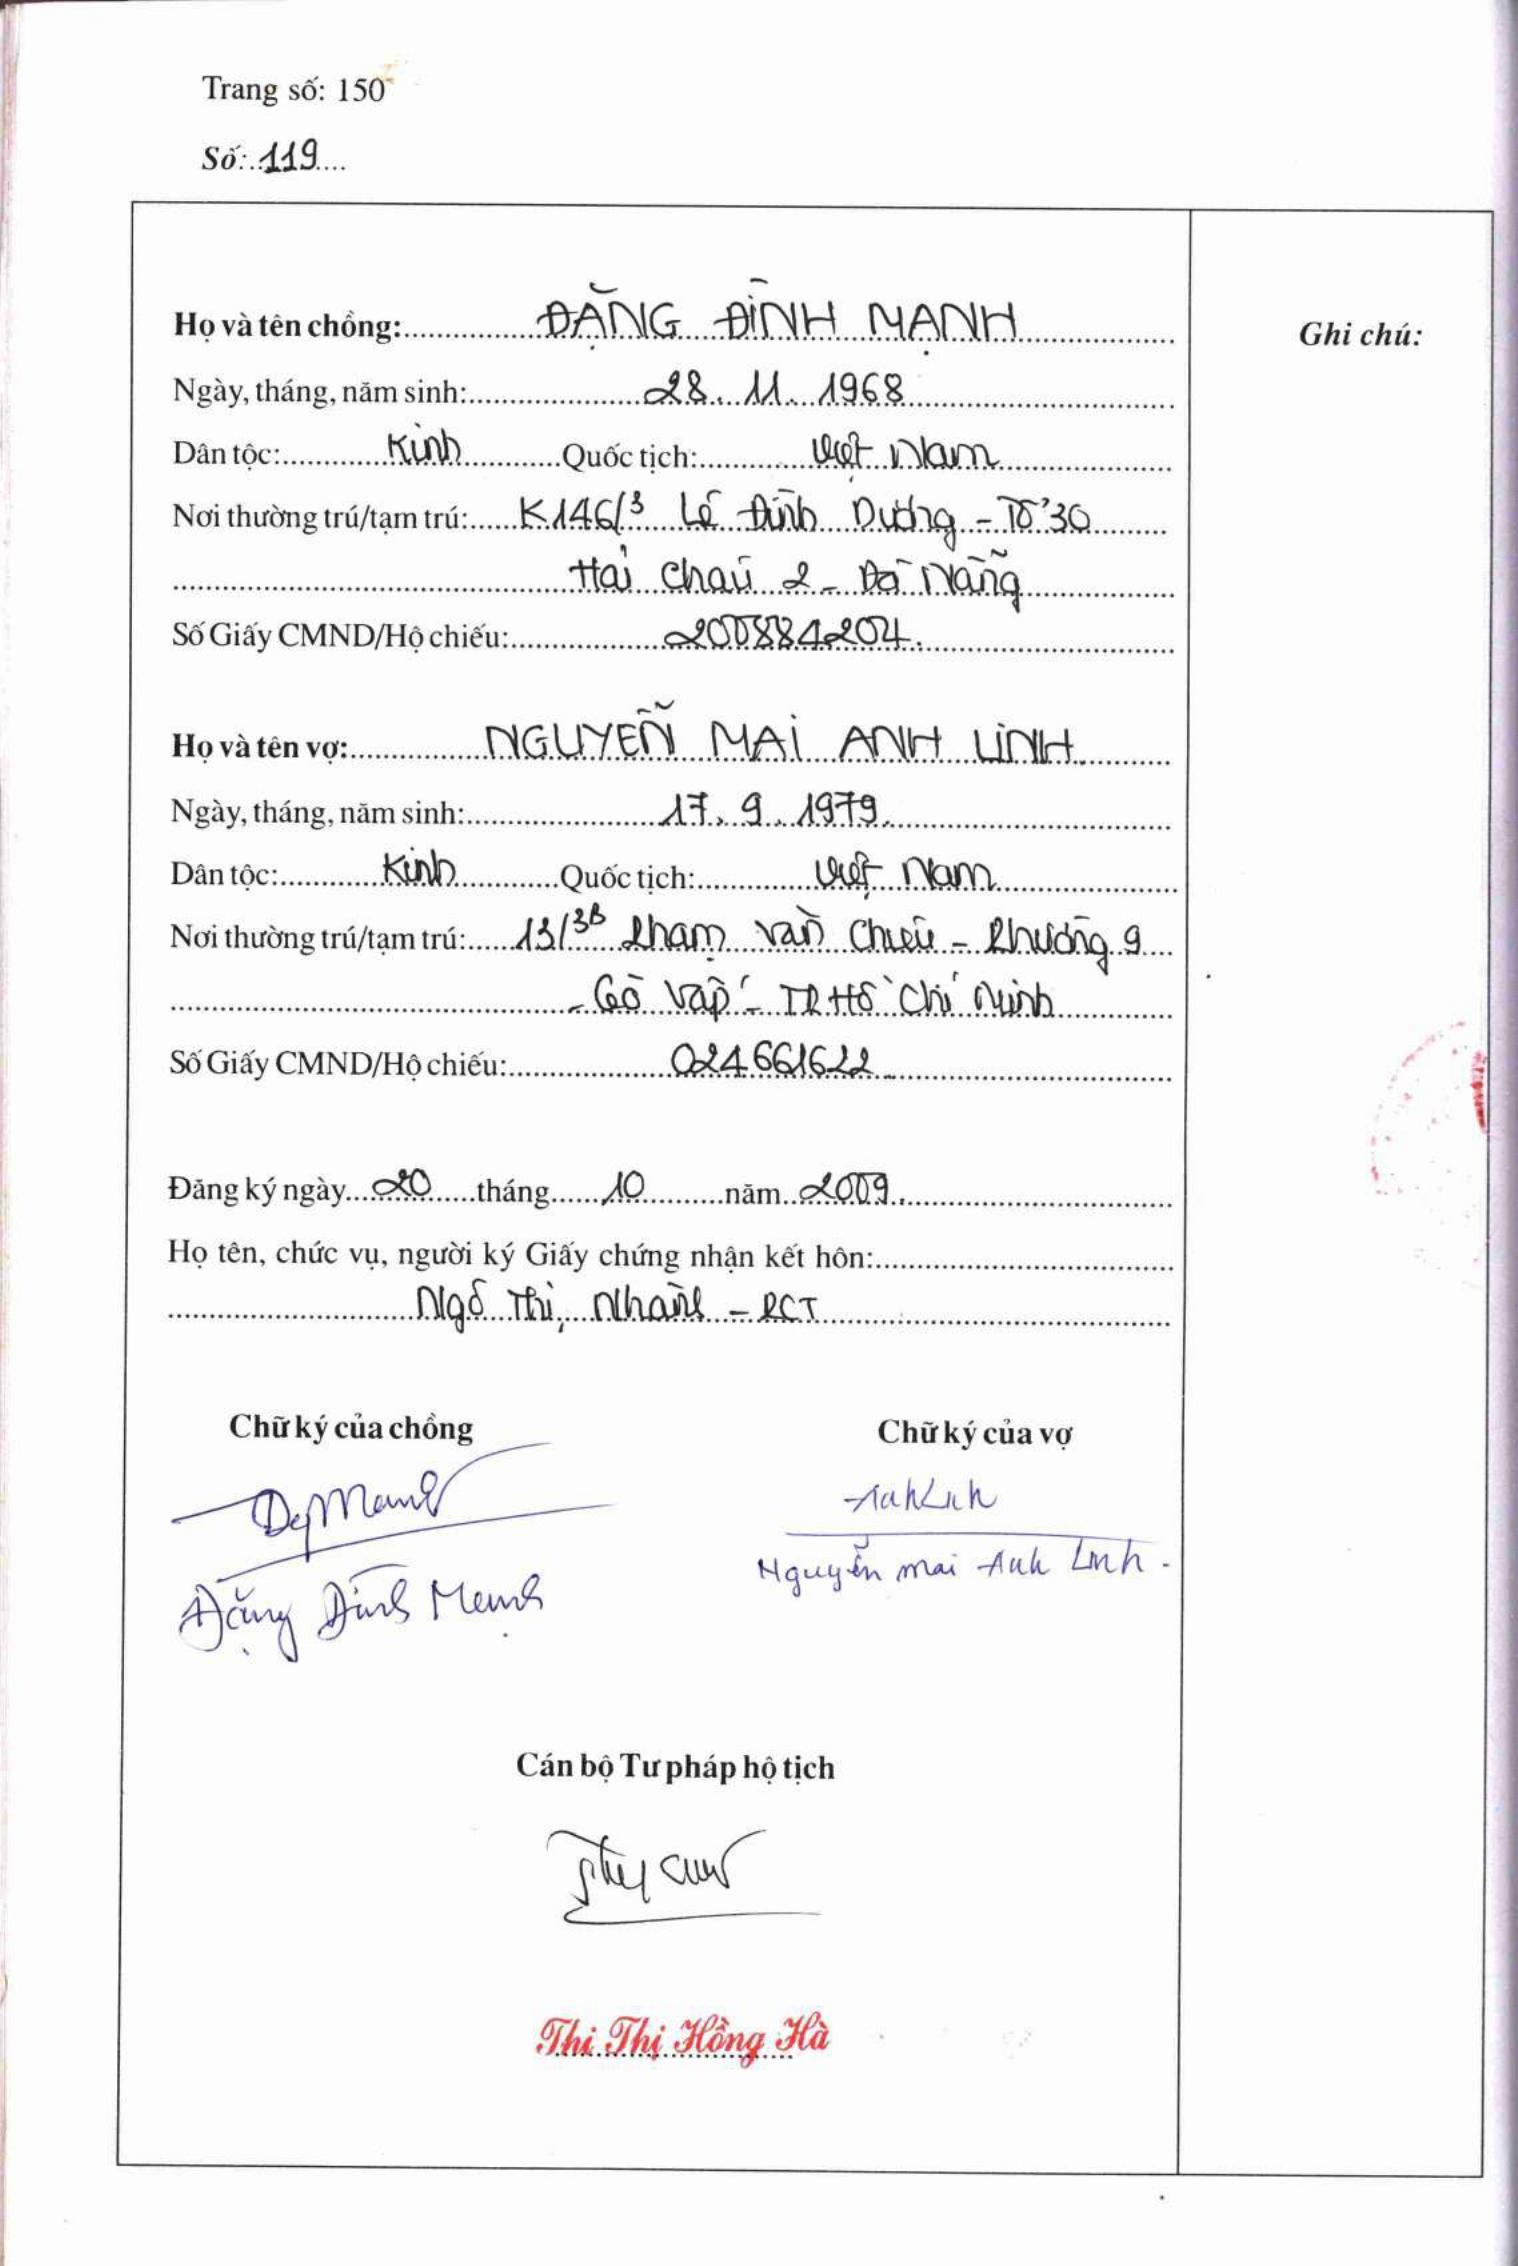 Trang số: 150
Số: 119
Họ và tên chồng: ĐẶNG ĐÌNH MẠNH
Ghi chú:
Ngày, tháng, năm sinh: 28. 11. 1968
Dân tộc: Kinh Quốc tịch: Việt Nam
Nơi thường trú/tạm trú: K146/3 Lê Đình Dương - Tổ 30
Hải Châu 2 - Đà Nẵng
Số Giấy CMND/Hộ chiếu: 200884204.
Họ và tên vợ: NGUYỄN MAI ANH LINH
Ngày, tháng, năm sinh: 17. 9. 1979.
Dân tộc: Kinh Quốc tịch: Việt Nam
Nơi thường trú/tạm trú: 13/3B Phạm Văn Chiêu - Phường 9
- Gò Vấp - TP Hồ Chí Minh
Số Giấy CMND/Hộ chiếu: 024661622
Đăng ký ngày 20 tháng 10 năm 2009.
Họ tên, chức vụ, người ký Giấy chứng nhận kết hôn:
Ngô Thị Nhành - PCT
Chữ ký của chồng
Chữ ký của vợ
AnhLinh
Nguyễn Mai Anh Linh.
Đặng Đình Mạnh
Cán bộ Tư pháp hộ tịch
Thi Thị Hồng Hà